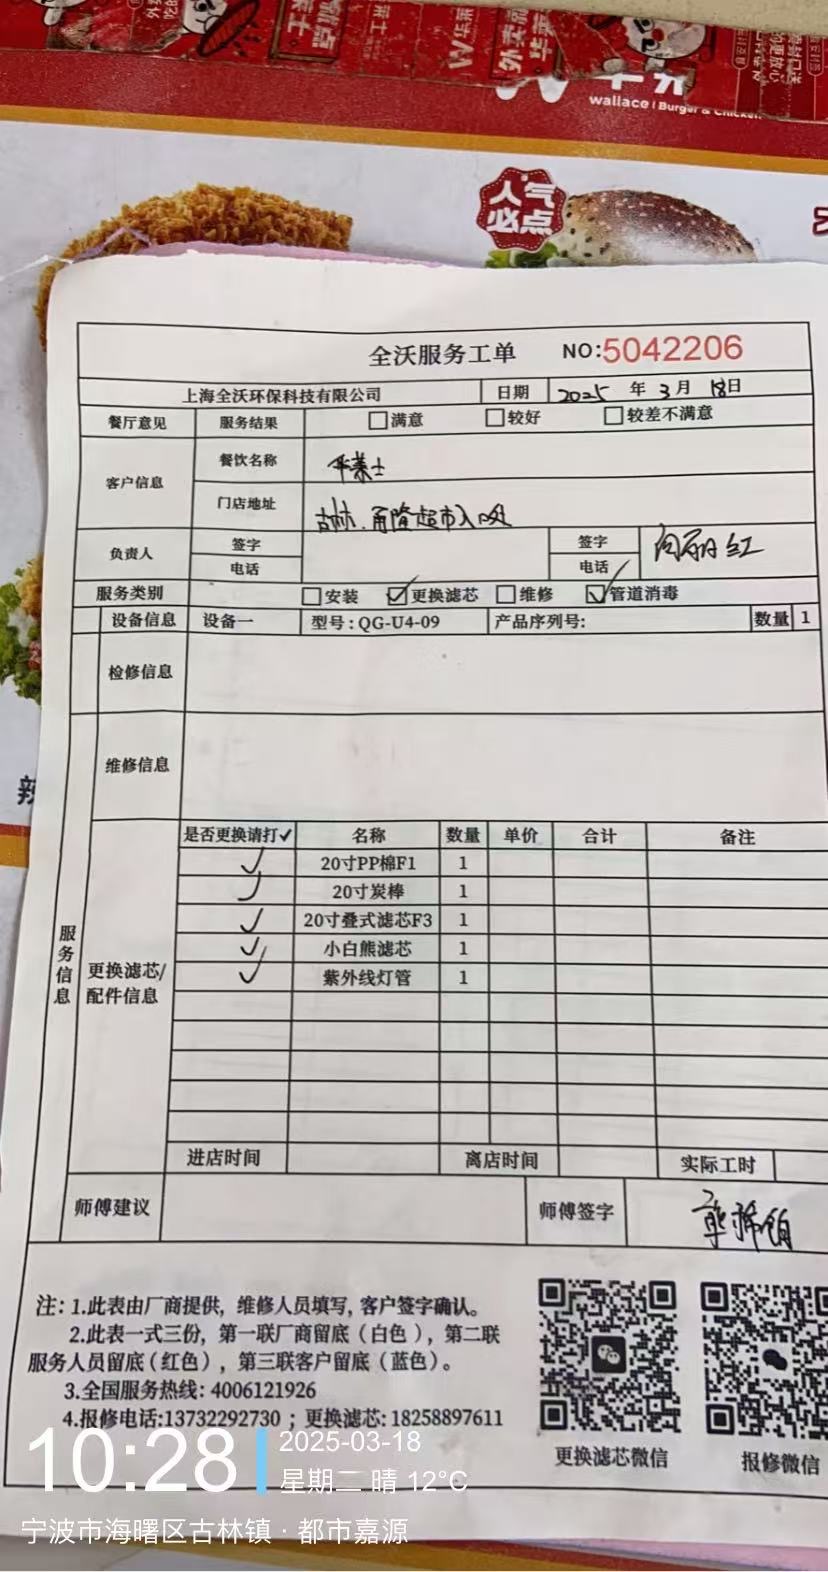 wallace | Burger & Chicken
人气
必点
全沃服务工单 NO:5042206
上海全沃环保科技有限公司 日期 2025 年 3 月 18 日
餐厅意见 服务结果 满意 较好 较差不满意
客户信息 餐饮名称 华莱士
门店地址 古林.甬隆超市入口处
负责人 签字 签字
电话 电话
服务类别 安装 更换滤芯 维修 管道消毒
设备信息 设备一 型号:QG-U4-09 产品序列号: 数量 1
检修信息
维修信息
服务信息
更换滤芯/
配件信息
是否更换请打✓ 名称 数量 单价 合计 备注
✓ 20寸PP棉F1 1
✓ 20寸炭棒 1
✓ 20寸叠式滤芯F3 1
✓ 小白熊滤芯 1
✓ 紫外线灯管 1
进店时间 离店时间 实际工时
师傅建议 师傅签字
注:1.此表由厂商提供,维修人员填写,客户签字确认。
2.此表一式三份,第一联厂商留底(白色),第二联
服务人员留底(红色),第三联客户留底(蓝色)。
3.全国服务热线:4006121926
4.报修电话:13732292730;更换滤芯:18258897611
更换滤芯微信 报修微信
10:28
2025-03-18
星期二 晴 12°C
宁波市海曙区古林镇·都市嘉源